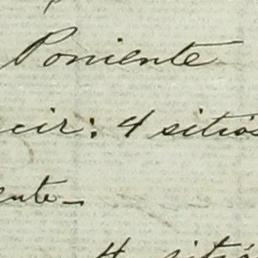 Poniente
cir: 4 sitios
ente-
4 sitio